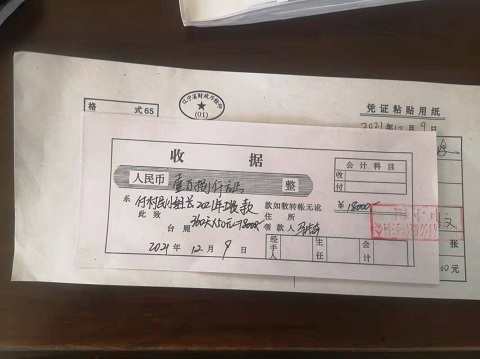 格 式 65
辽宁省财政厅监印
(01)
凭证粘贴用纸
2021年12月9日
收 据
会计科目
收
付
人民币 壹万捌仟元正 整
系 付村民小组长2021年工资款 款如数转帐无讹 ¥18000
此致 360天×50元=18000 住所
台照 领款人
2021年12月9日
经手人
主任
会计
张
00元